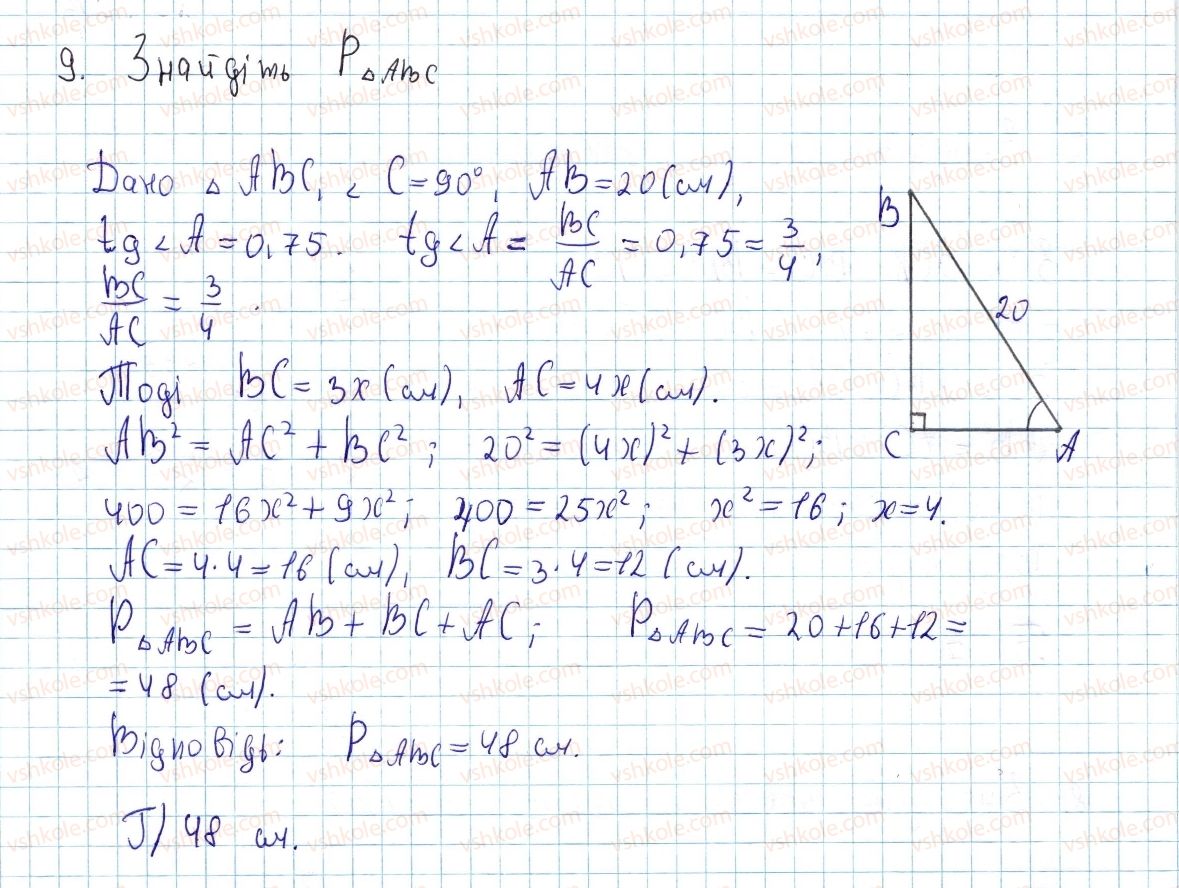 9. Знайдіть P△ABC
Дано △ ABC, < C = 90°, AB = 20 (см),
tg < A = 0,75. tg < A = BC/AC = 0,75 = 3/4,
BC/AC = 3/4.
Тоді BC = 3x (см), AC = 4x (см).
AB² = AC² + BC²; 20² = (4x)² + (3x)²;
400 = 16x² + 9x²; 400 = 25x²; x² = 16; x = 4.
AC = 4·4 = 16 (см), BC = 3·4 = 12 (см).
P△ABC = AB + BC + AC; P△ABC = 20 + 16 + 12 =
= 48 (см).
Відповідь: P△ABC = 48 см.
Г) 48 см.
B
20
C
A
vshkole.com